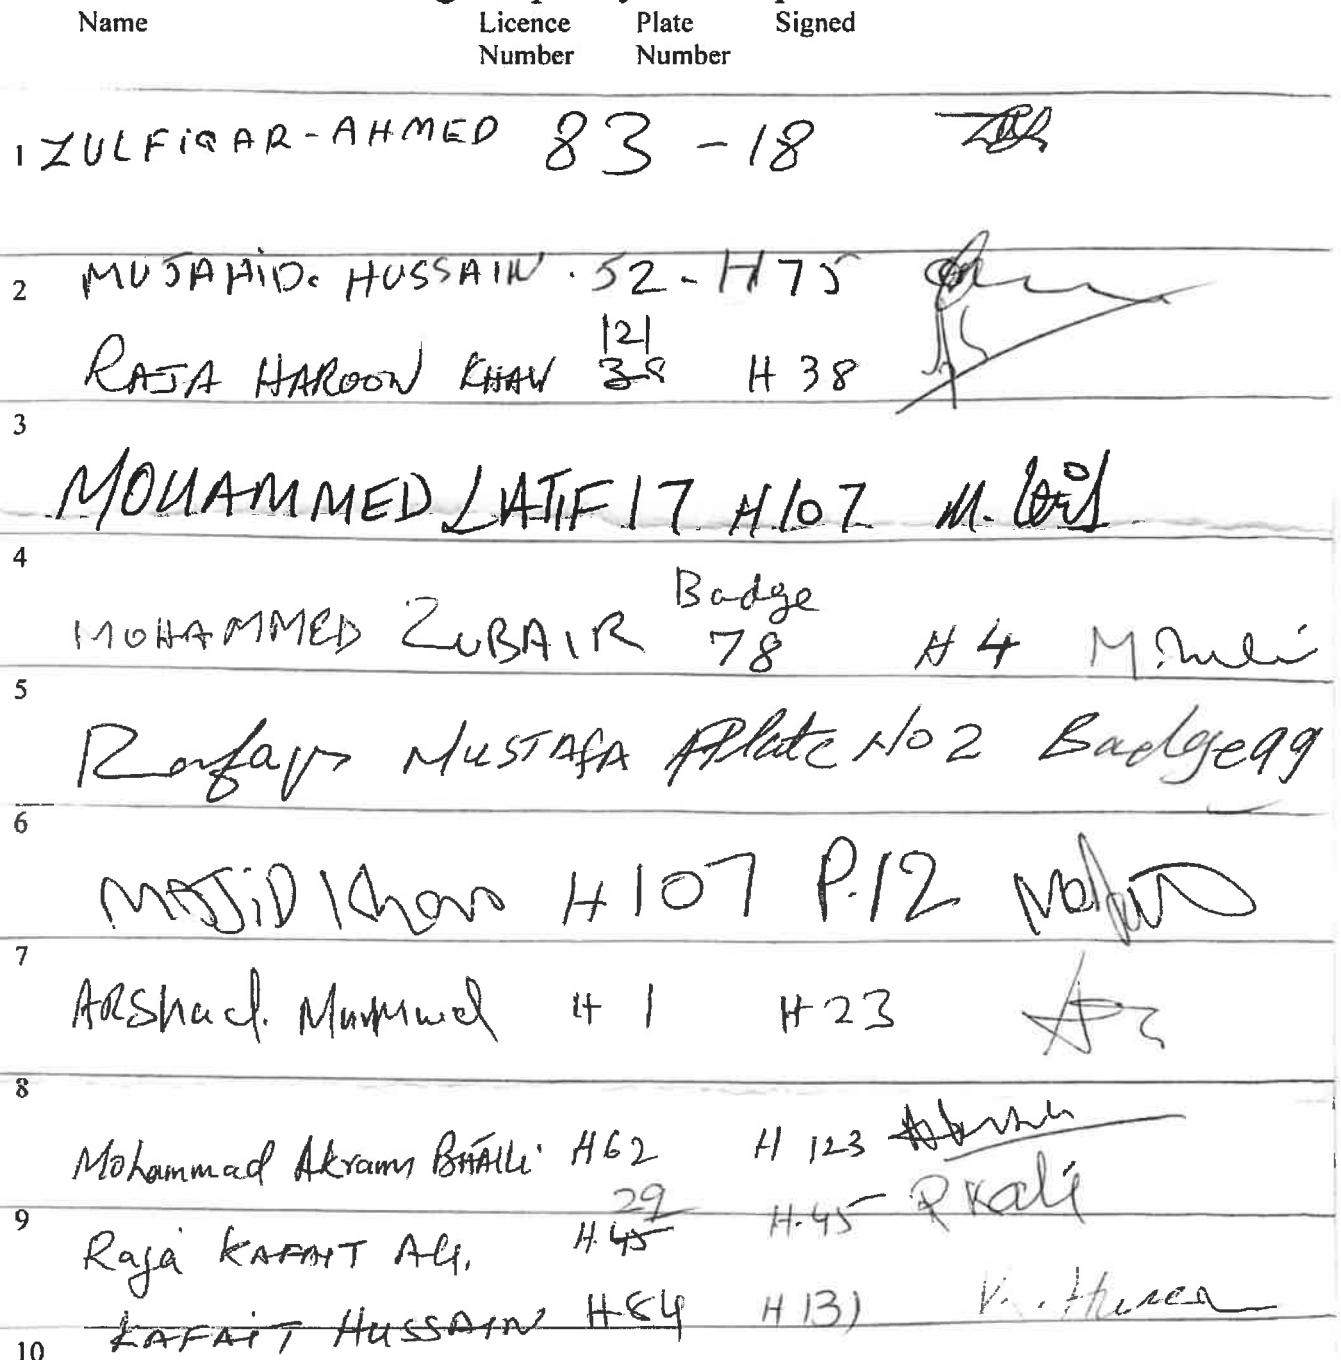 Name Licence Number Plate Number Signed
1 ZULFIQAR-AHMED 83 - 18
2 MUJAHID. HUSSAIN . 52 - H75
RAJA HAROON KHAN 121 38 H 38
3
MOHAMMED LATIF 17 H107 M. Latif
4
MOHAMMED ZUBAIR Badge 78 H 4
5
MUSTAFA Plate No 2 Badge 99
6
MAJID Khan H 107 P.12
7
ARShad. H 1 H 23
8
Mohammad Akram H62 H 123
9
Raja KAFAIT Ali. 29 H.45 H.45
KAFAIT HUSSAIN H84 H 131 K. Hussa
10